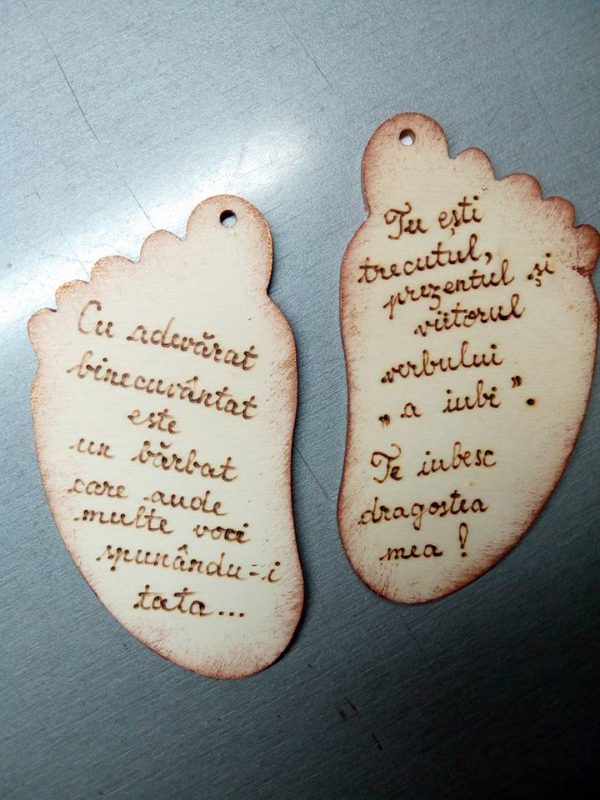 Cu adevărat
binecuvântat
este
un bărbat
care aude
multe voci
spunându-i
tata...
Tu ești
trecutul,
prezentul și
viitorul
verbului
„a iubi”.
Te iubesc
dragostea
mea!